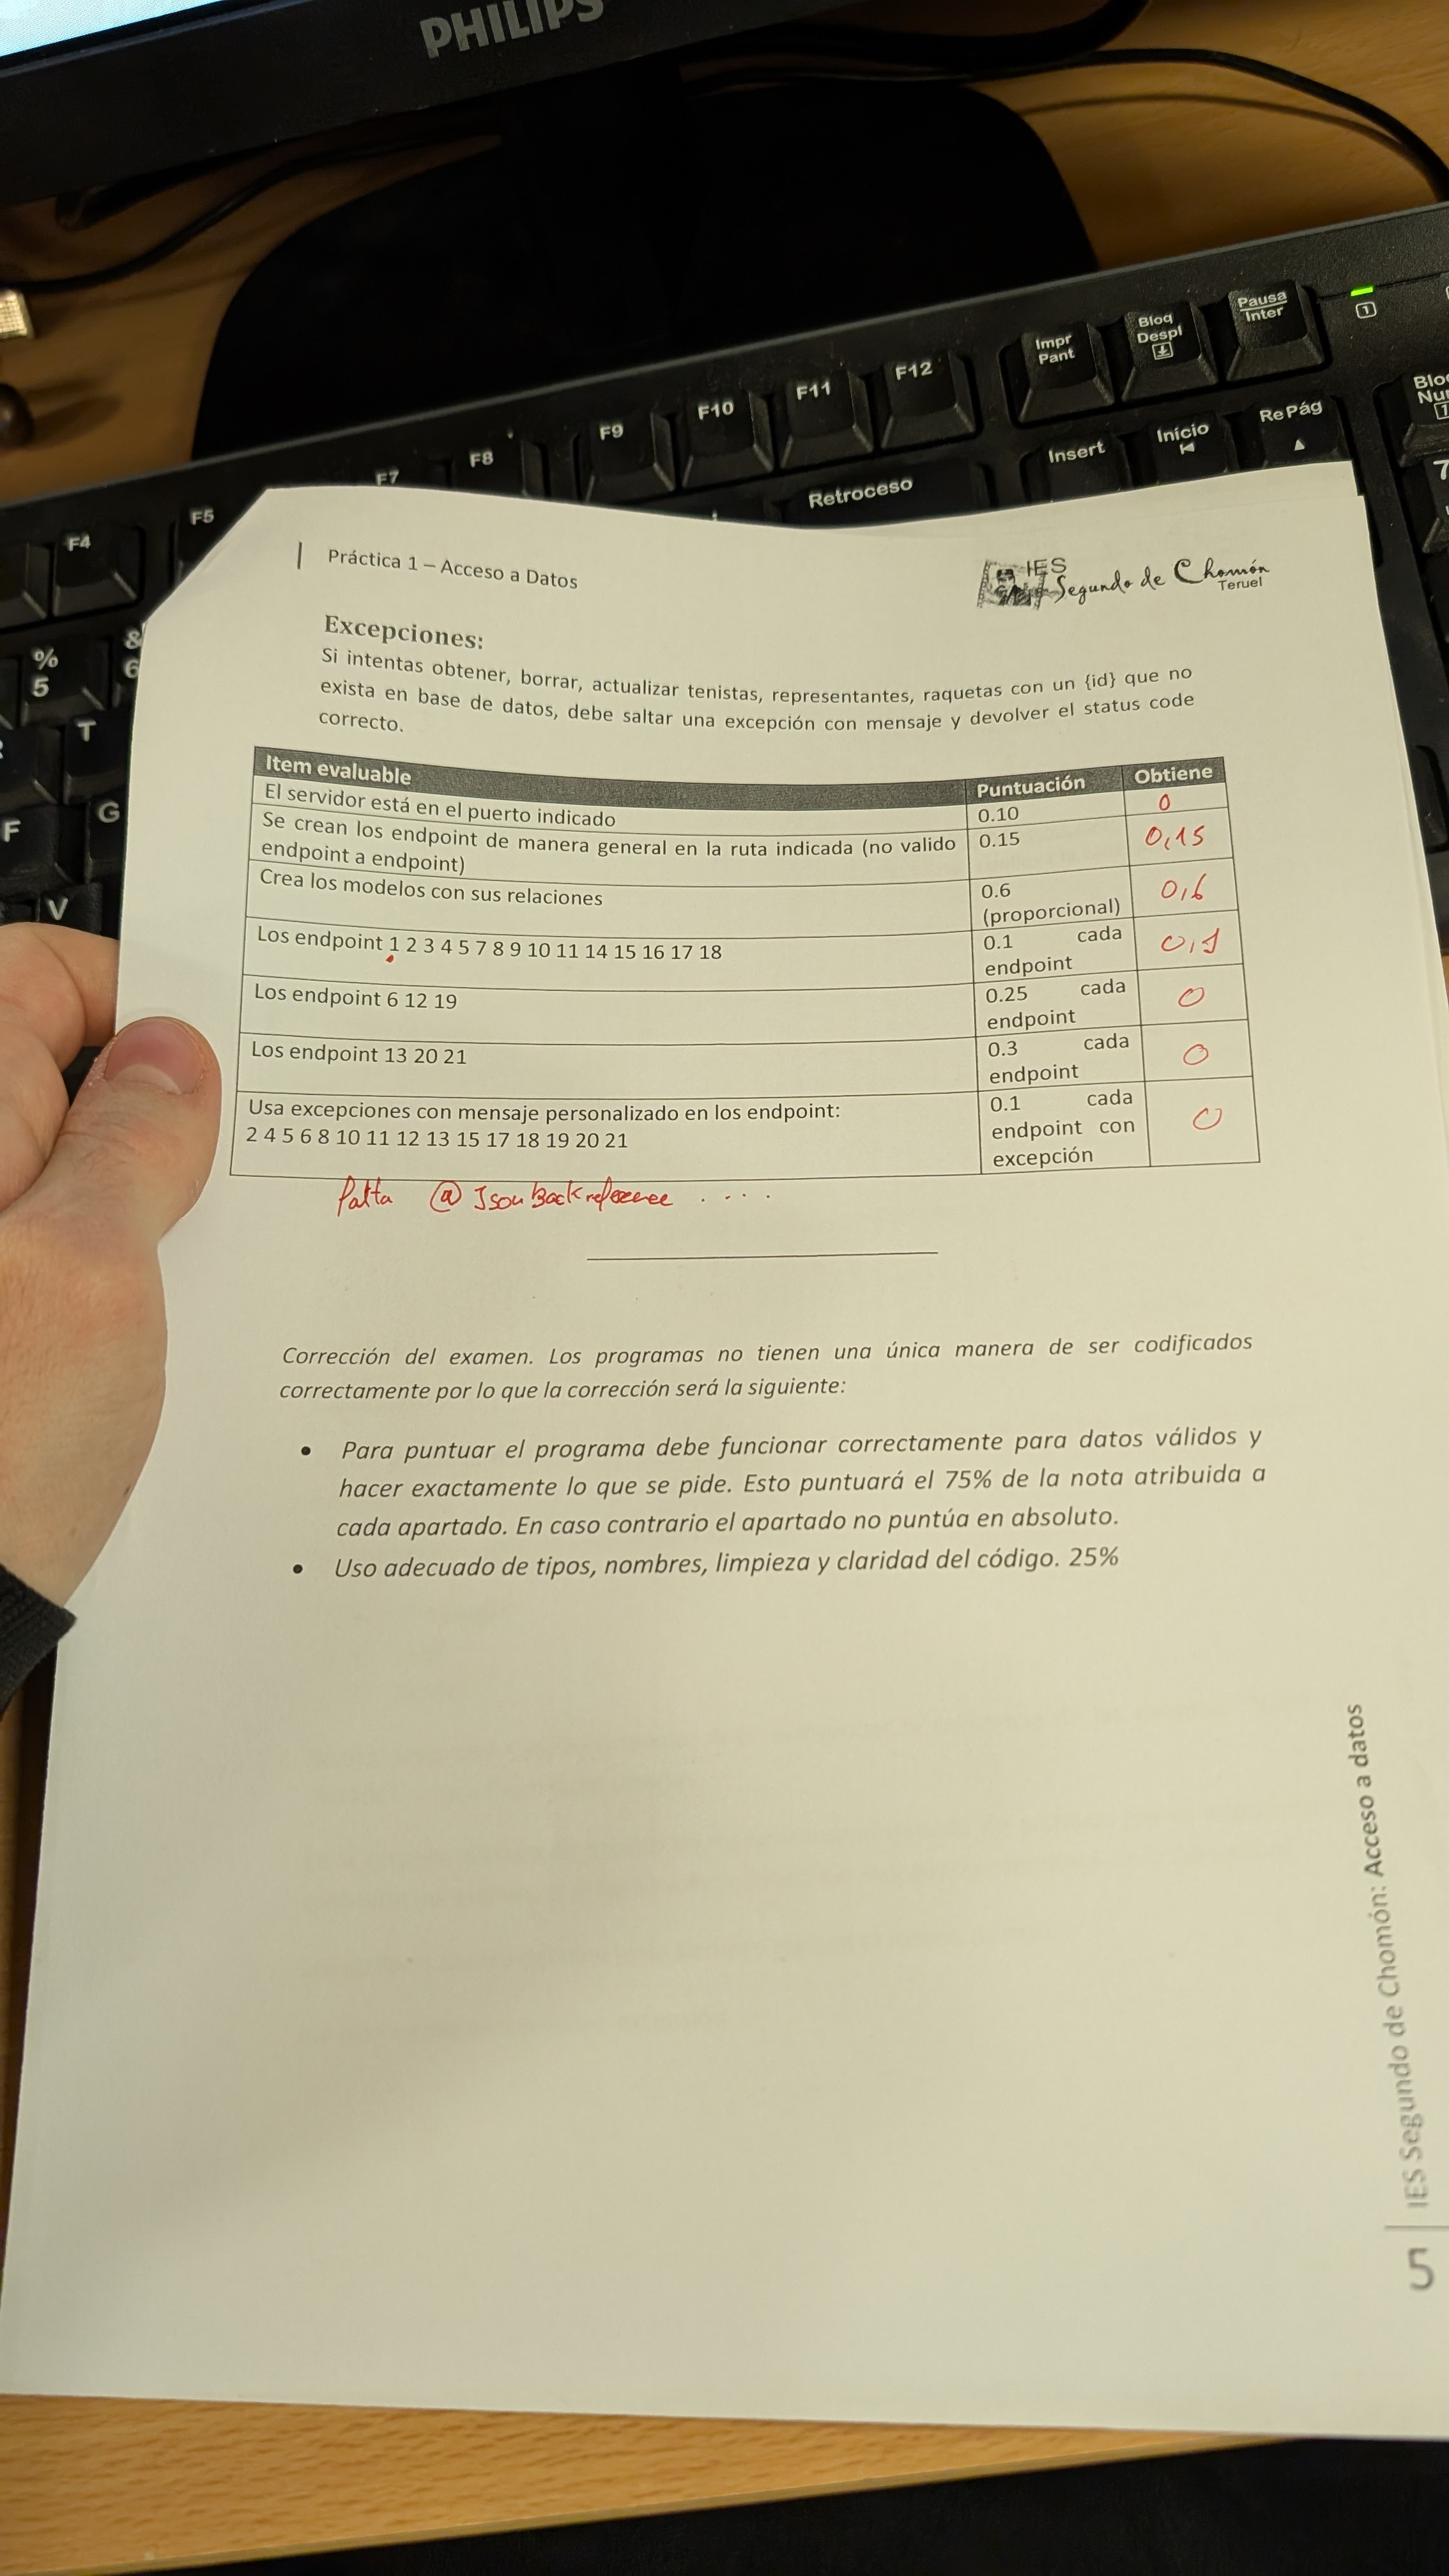 PHILIPS
Impr Pant
Bloq Despl
Pausa Inter
1
F4
F5
F7
F8
F9
F10
F11
F12
Retroceso
Insert
Inicio
RePág
7
%
5
&
6
T
F
G
V
Práctica 1 – Acceso a Datos
IES
Segundo de Chomón
Teruel
Excepciones:
Si intentas obtener, borrar, actualizar tenistas, representantes, raquetas con un {id} que no
exista en base de datos, debe saltar una excepción con mensaje y devolver el status code
correcto.
Item evaluable Puntuación Obtiene
El servidor está en el puerto indicado 0.10 0
Se crean los endpoint de manera general en la ruta indicada (no valido 0.15 0,15
endpoint a endpoint)
Crea los modelos con sus relaciones 0.6 0,6
(proporcional)
Los endpoint 1 2 3 4 5 7 8 9 10 11 14 15 16 17 18 0.1 cada 0,1
endpoint
Los endpoint 6 12 19 0.25 cada 0
endpoint
Los endpoint 13 20 21 0.3 cada 0
endpoint
Usa excepciones con mensaje personalizado en los endpoint: 0.1 cada 0
2 4 5 6 8 10 11 12 13 15 17 18 19 20 21 endpoint con
excepción
Falta @JsonBackreference ....
Corrección del examen. Los programas no tienen una única manera de ser codificados
correctamente por lo que la corrección será la siguiente:
• Para puntuar el programa debe funcionar correctamente para datos válidos y
hacer exactamente lo que se pide. Esto puntuará el 75% de la nota atribuida a
cada apartado. En caso contrario el apartado no puntúa en absoluto.
• Uso adecuado de tipos, nombres, limpieza y claridad del código. 25%
5 | IES Segundo de Chomón: Acceso a datos